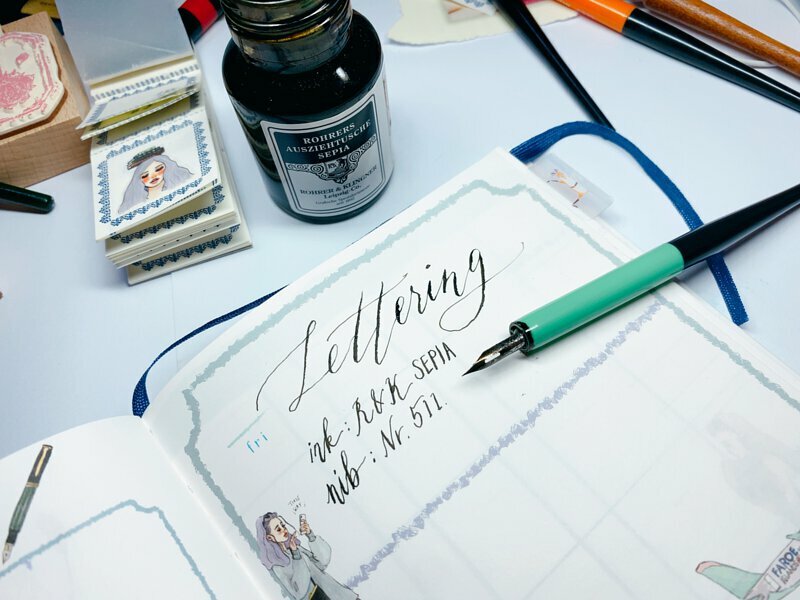 ROHRERS
AUSZIEHTUSCHE
SEPIA
ROHRER & KLINGNER
Leipzig Co.
Lettering
Fri
ink: R&K SEPIA
nib: Nr. 511.
FAROE